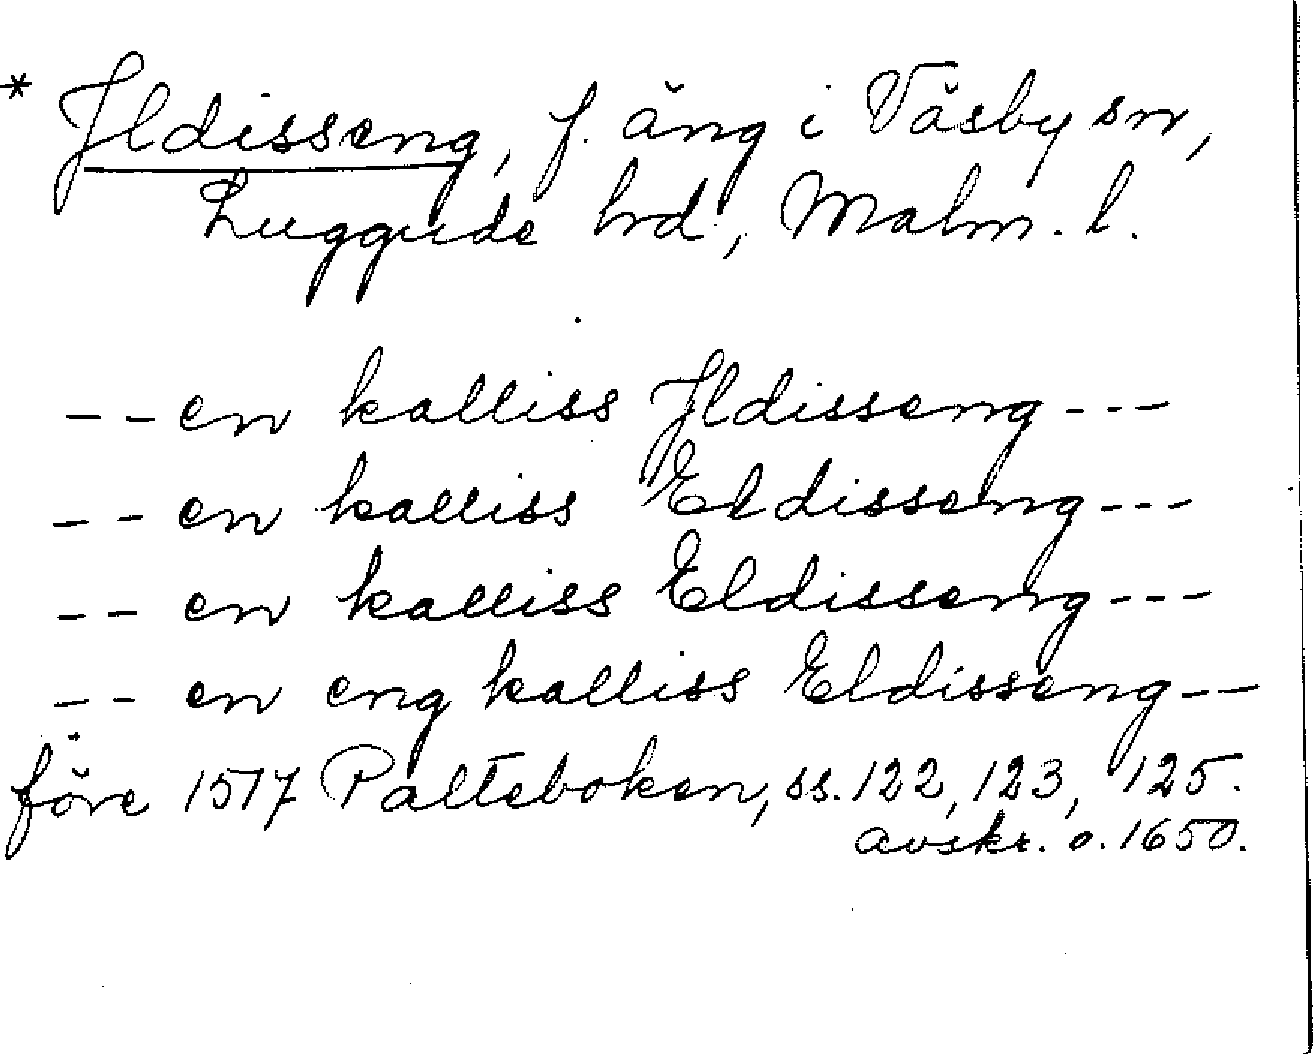 * Jldisseng, f. äng i Väsby sn,
Luggude hd, Malm. l.
-- en kalliss Jldisseng ---
-- en kalliss Eldisseng ---
-- en kalliss Eldisseng ---
-- en eng kalliss Eldisseng --
före 1517 Palteboken, ss. 122, 123, 125.
avskr. o. 1650.